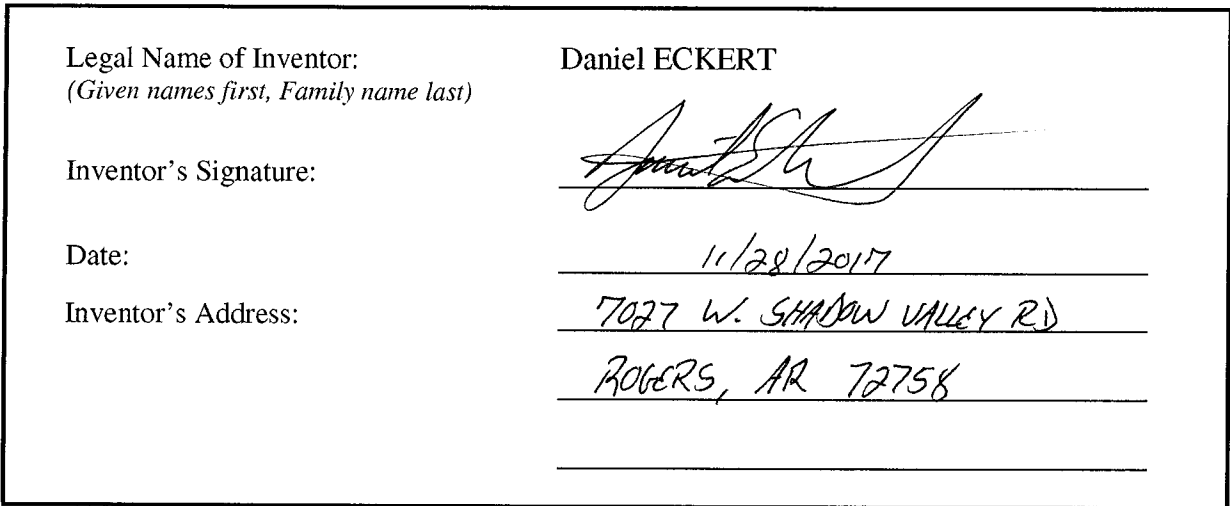 Legal Name of Inventor: Daniel ECKERT
(Given names first, Family name last)
Inventor's Signature:
Date: 11/28/2017
Inventor's Address: 7027 W. SHADOW VALLEY RD
ROGERS, AR 72758